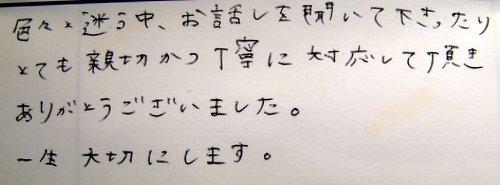 色々と迷う中、お話しを聞いて下さったり
とても親切かつ丁寧に対応して頂き
ありがとうございました。
一生 大切にします。